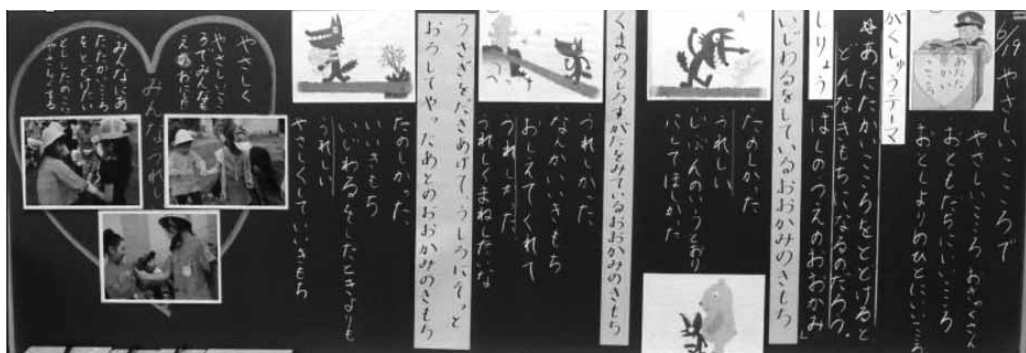 6/19 やさしいこころで
あたた
かい
こころ
やさしいこころ おきゃくさん
おともだちにいいこころ
おとしよりのひとにいいこころ
がくしゅうテーマ
あたたかいこころをとどけると
どんなきもちになるのだろう。
しりょう
はしのうえのおおかみ」
いじわるをしているおおかみのきもち
たのしかった
うれしい
じぶんのいうとおり
にしてほしかた
くまのうしろすがたをみているおおかみのきもち
うれしかた
なんかいいきもち
おしえてくれて
うれしかった
うれしくまねしたいな
うさぎをだきあげて、うしろにそっと
おろしてやったあとのおおかみのきもち
たのしかった
いいきもち
いじわるをしたときよりも
うれしい
やさしくしていいきもち
みんなつれ
やさしく
やさしいこころ
でみんなを
みんなにあ
たたかいこころ
をとどけたい